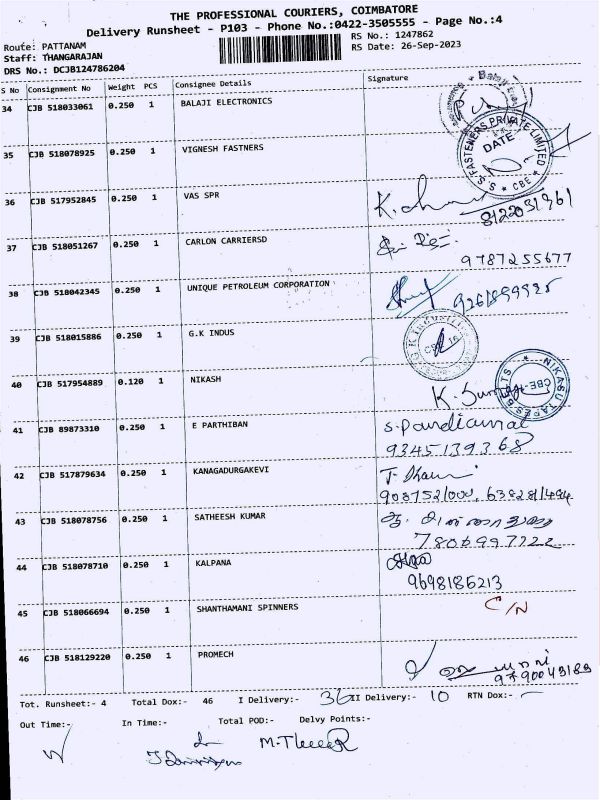 THE PROFESSIONAL COURIERS, COIMBATORE
Delivery Runsheet - P103 - Phone No.:0422-3505555 - Page No.:4
Route: PATTANAM
RS No.: 1247862
Staff: THANGARAJAN
RS Date: 26-Sep-2023
DRS No.: DCJB124786204
S No Consignment No Weight PCS Consignee Details Signature
34 CJB 518033061 0.250 1 BALAJI ELECTRONICS
35 CJB 518078925 0.250 1 VIGNESH FASTNERS
S S FASTENERS PRIVATE LIMITED * CBE * DATE
36 CJB 517952845 0.250 1 VAS SPR
37 CJB 518051267 0.250 1 CARLON CARRIERSD
9787255677
38 CJB 518042345 0.250 1 UNIQUE PETROLEUM CORPORATION
39 CJB 518015886 0.250 1 G.K INDUS
40 CJB 517954889 0.120 1 NIKASH
NIKASU TAPES BELTS
41 CJB 89873310 0.250 1 E PARTHIBAN
9345139368
42 CJB 517879634 0.250 1 KANAGADURGAKEVI
43 CJB 518078756 0.250 1 SATHEESH KUMAR
44 CJB 518078710 0.250 1 KALPANA
9698186213
45 CJB 518066694 0.250 1 SHANTHAMANI SPINNERS C/N
46 CJB 518129220 0.250 1 PROMECH
Tot. Runsheet:- 4 Total Dox:- 46 I Delivery:- 36 II Delivery:- 10 RTN Dox:-
Out Time:- In Time:- Total POD:- Delvy Points:-